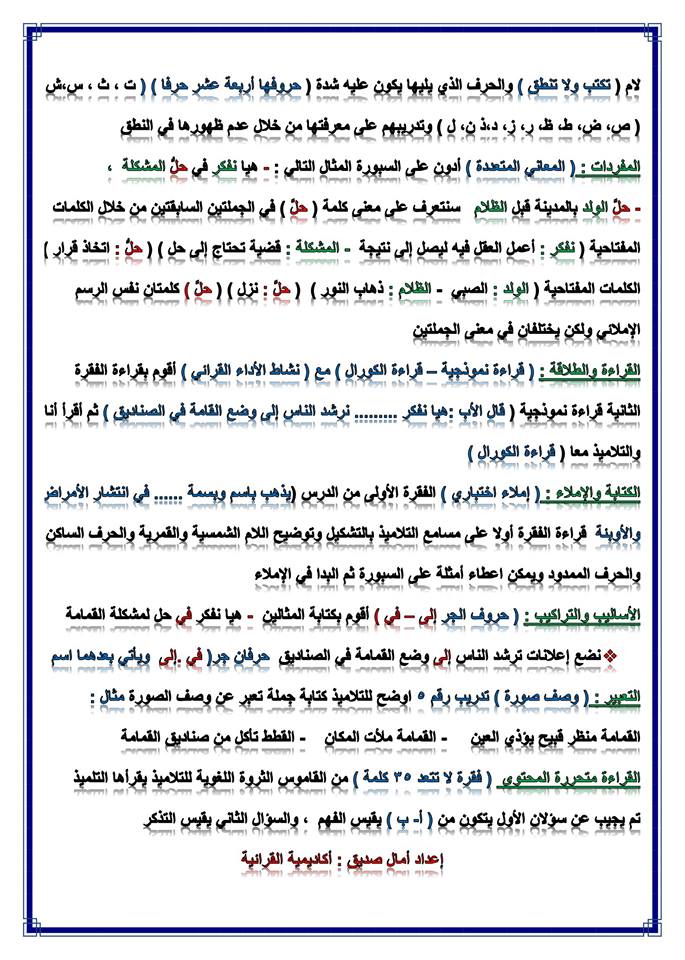 لام ( تكتب ولا تنطق ) والحرف الذي يليها يكون عليه شدة ( حروفها أربعة عشر حرفا ) ( ت ، ث ، س،ش
( ص، ض، ط، ظ، ر، ز، د،ذ ن، ل ) وتدريبهم على معرفتها من خلال عدم ظهورها في النطق
المفردات : ( المعاني المتعددة ) أدون على السبورة المثال التالي : - هيا نفكر في حلَّ المشكلة ،
- حلَّ الولد بالمدينة قبل الظلام سنتعرف على معنى كلمة ( حلَّ ) في الجملتين السابقتين من خلال الكلمات
المفتاحية ( نفكر : أعمل العقل فيه ليصل إلى نتيجة - المشكلة : قضية تحتاج إلى حل ) ( حلَّ : اتخاذ قرار )
الكلمات المفتاحية ( الولد : الصبي - الظلام : ذهاب النور ) ( حلَّ : نزل ) ( حلَّ ) كلمتان نفس الرسم
الإملائي ولكن يختلفان في معنى الجملتين
القراءة والطلاقة : ( قراءة نموذجية – قراءة الكورال ) مع ( نشاط الأداء القرائي ) أقوم بقراءة الفقرة
الثانية قراءة نموذجية ( قال الأب :هيا نفكر ......... نرشد الناس إلى وضع القامة في الصناديق ) ثم أقرأ أنا
والتلاميذ معا ( قراءة الكورال )
الكتابة والإملاء : ( إملاء اختباري ) الفقرة الأولى من الدرس (يذهب باسم وبسمة ...... في انتشار الأمراض
والأوبئة قراءة الفقرة أولا على مسامع التلاميذ بالتشكيل وتوضيح اللام الشمسية والقمرية والحرف الساكن
والحرف الممدود ويمكن اعطاء أمثلة على السبورة ثم البدا في الإملاء
الأساليب والتراكيب : ( حروف الجر إلى – في ) أقوم بكتابة المثالين - هيا نفكر في حل لمشكلة القمامة
❖نضع إعلانات ترشد الناس إلى وضع القمامة في الصناديق حرفان جر( في .إلى ويأتي بعدهما اسم
التعبير : ( وصف صورة ) تدريب رقم ٥ اوضح للتلاميذ كتابة جملة تعبر عن وصف الصورة مثال :
القمامة منظر قبيح يؤذي العين - القمامة ملأت المكان - القطط تأكل من صناديق القمامة
القراءة متحررة المحتوى ( فقرة لا تتعد ٣٥ كلمة ) من القاموس الثروة اللغوية للتلاميذ يقرأها التلميذ
تم يجيب عن سؤلان الأول يتكون من ( أ- ب ) يقيس الفهم ، والسؤال الثاني يقيس التذكر
إعداد أمال صديق : أكاديمية القرائية